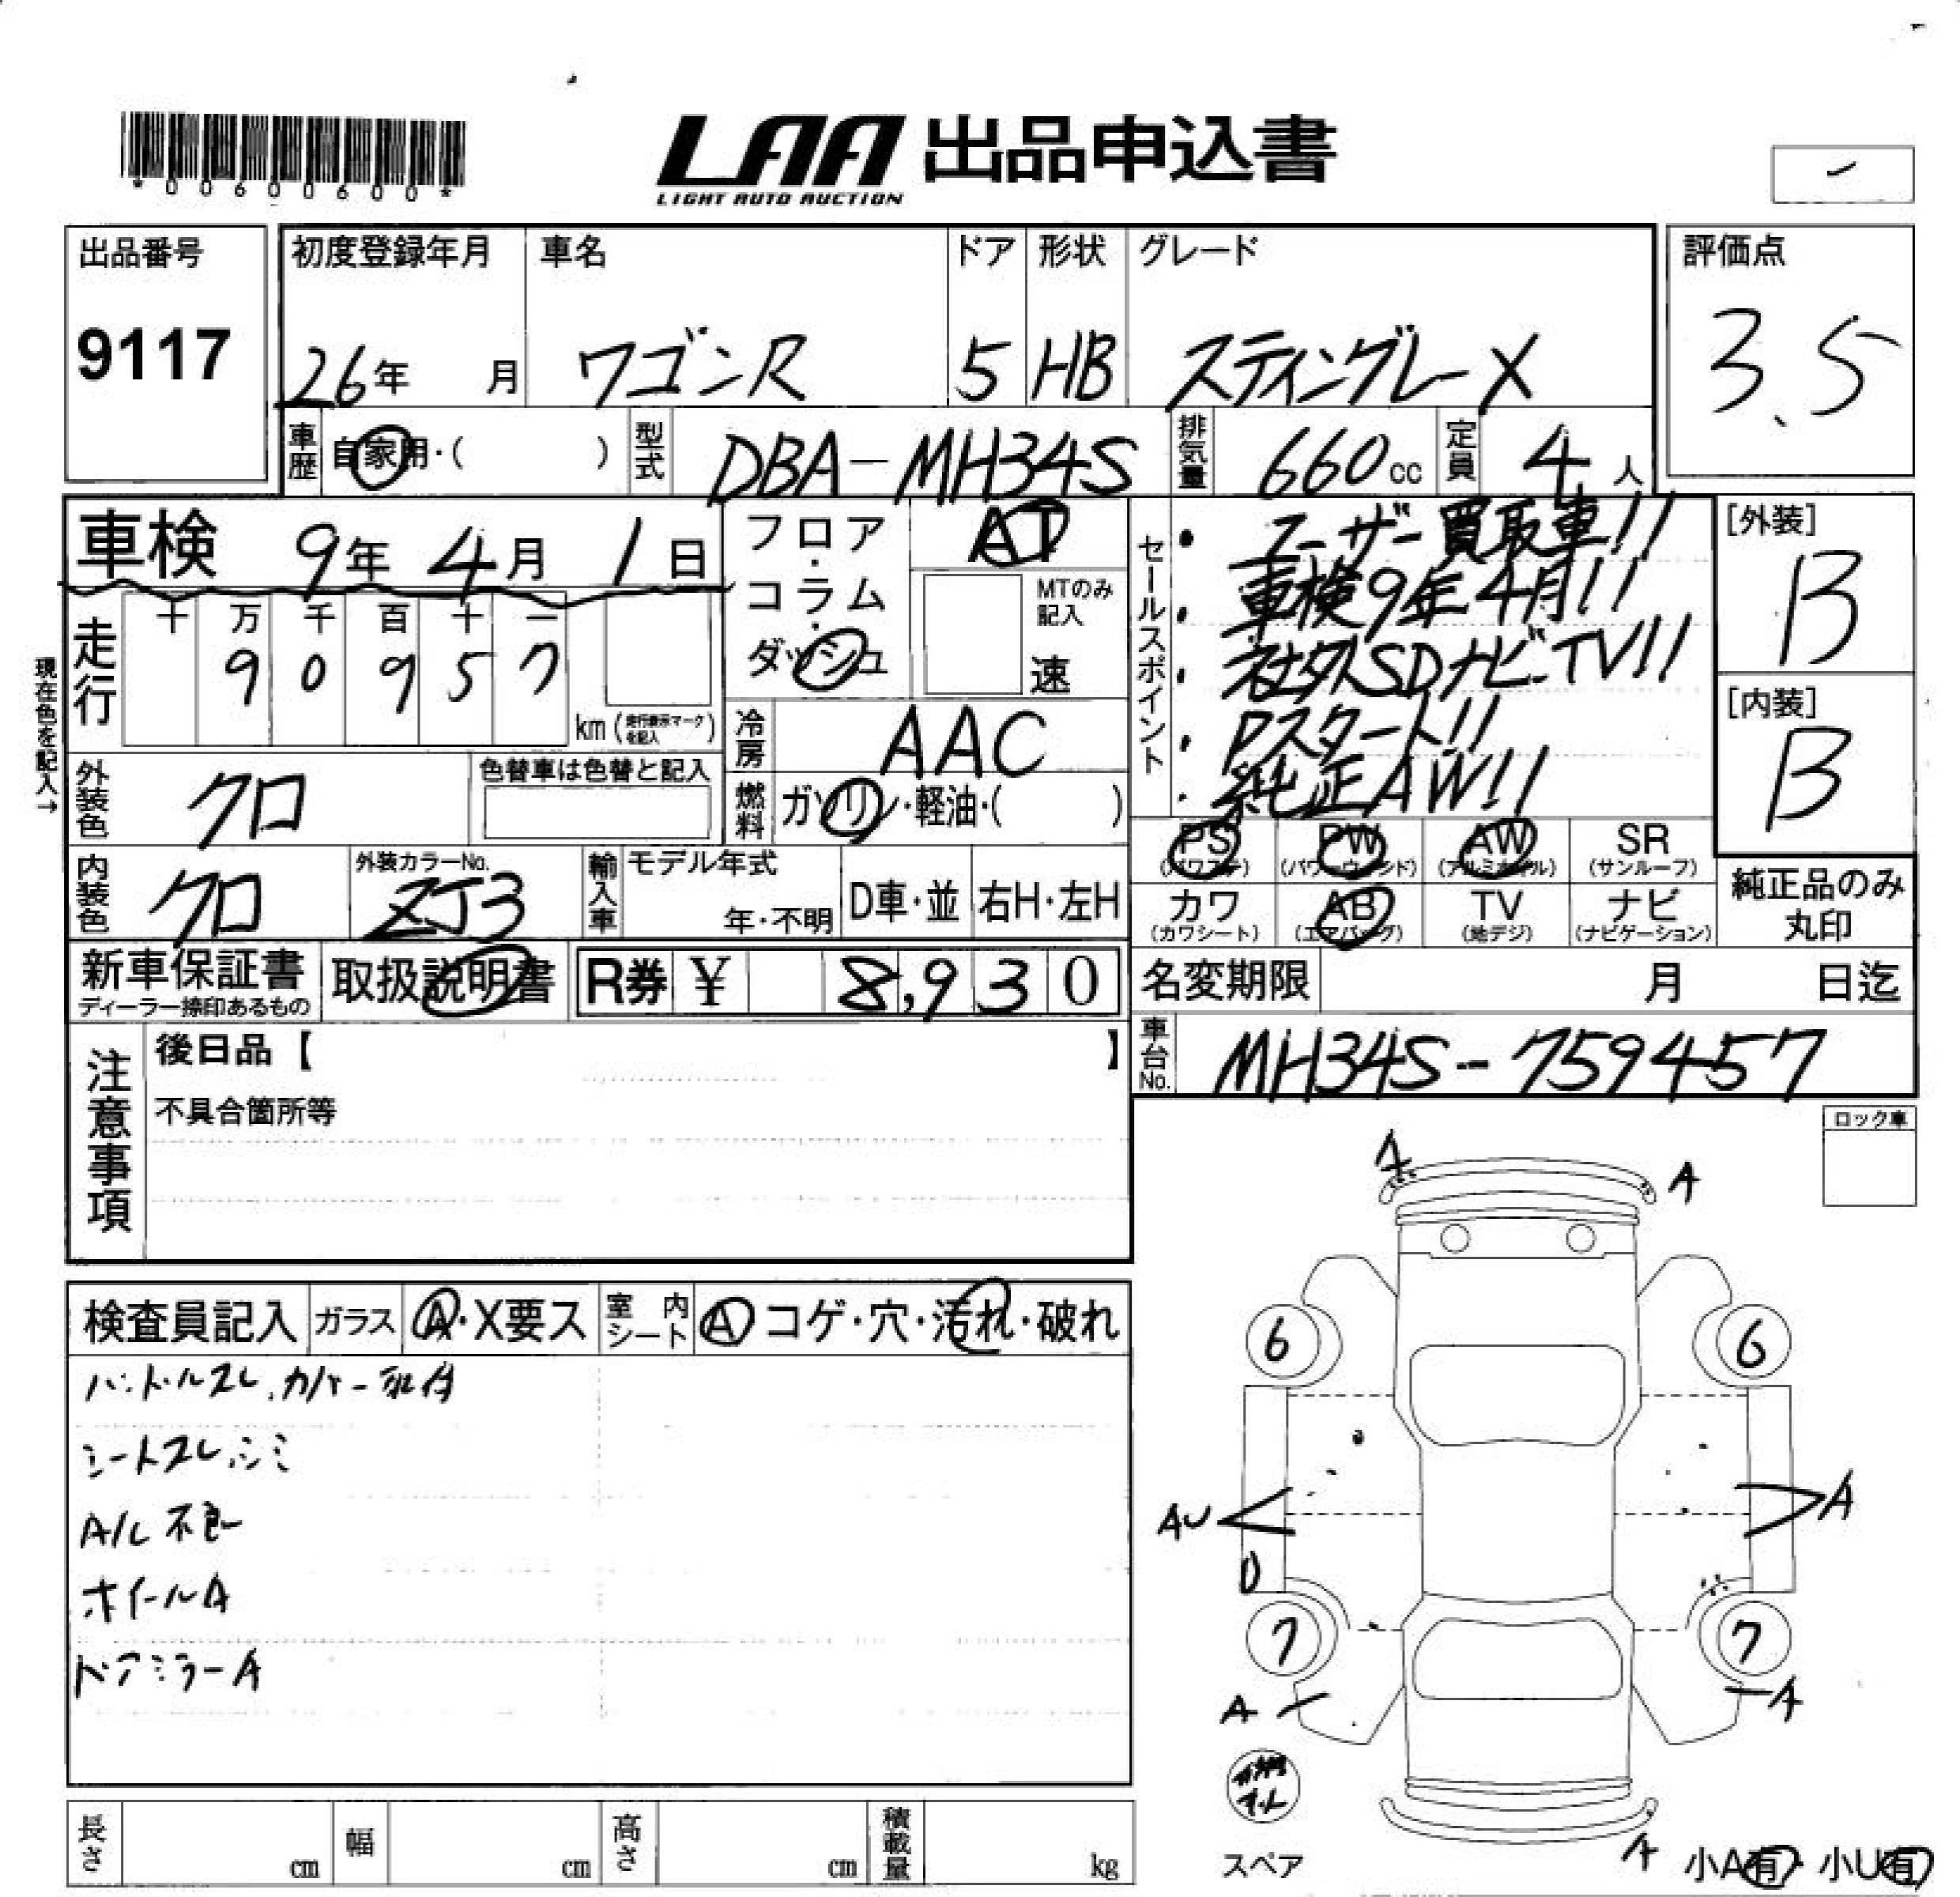 *00600600*
LAA 出品申込書
LIGHT AUTO AUCTION
出品番号
9117
初度登録年月
26年 月
車名
ワゴンR
ドア
5
形状
HB
グレード
スティングレーX
評価点
3.5
車歴
自家用・( )
型式
DBA-MH34S
排気量
660cc
定員
4人
車検 9年 4月 1日
フロア・コラム・ダッシュ
AT
MTのみ記入
速
セールスポイント
・ユーザー買取車!!
・車検9年4月!!
・社外SDナビ-TV!!
・Pスタート!!
・純正AW!!
[外装]
B
[内装]
B
現在色を記入→
走行
十 万 千 百 十 一
9 0 9 5 7
km (走行表示マークを記入)
冷房
AAC
燃料
ガソリン・軽油・( )
外装色
クロ
色替車は色替と記入
内装色
クロ
外装カラーNo.
ZJ3
輸入車
モデル年式
年・不明
D車・並
右H・左H
PS
(パワステ)
PW
(パワーウィンド)
AW
(アルミホイル)
SR
(サンルーフ)
カワ
(カワシート)
AB
(エアバッグ)
TV
(地デジ)
ナビ
(ナビゲーション)
純正品のみ丸印
新車保証書
ディーラー捺印あるもの
取扱説明書
R券 ¥ 8,930
名変期限 月 日迄
車台No.
MH34S-759457
注意事項
後日品【 】
不具合箇所等
ロック車
検査員記入
ガラス
A・X要ス
室内シート
A コゲ・穴・汚れ・破れ
ハンドルスレ、カバー取付
シートスレ、シミ
A/C不良
ホイールA
ドアミラーA
A
A
6
6
AU
A
U
7
7
A
A
スペア
A
小A有・小U有
長さ cm
幅 cm
高さ cm
積載量 kg